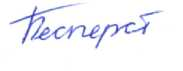 Песперст